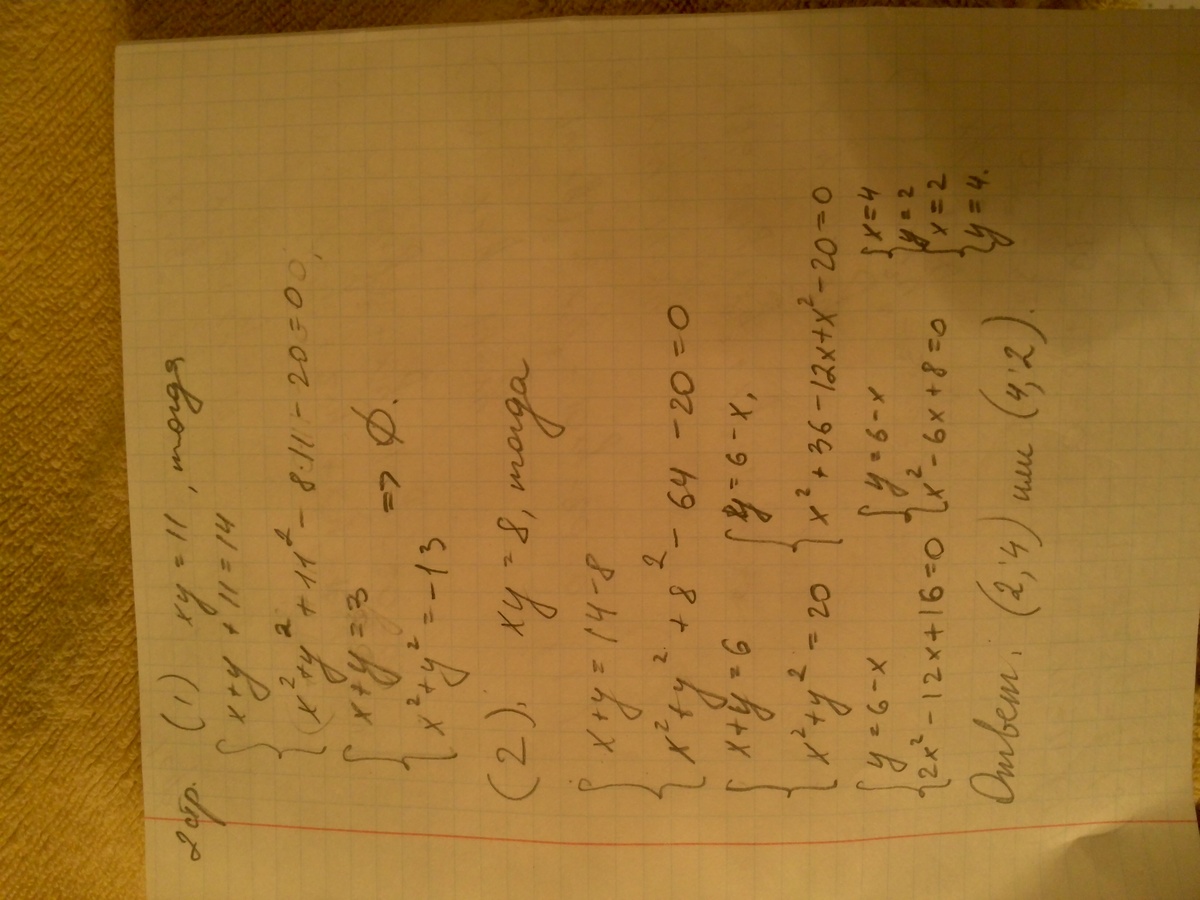 2 стр. (1) xy = 11, тогда
{ x+y + 11 = 14
{ x²+y² + 11² - 8·11 - 20 = 0 0,
{ x+y = 3
{ x²+y² = -13 => ∅.
(2). xy = 8, тогда
{ x+y = 14-8
{ x²+y² + 8² - 64 - 20 = 0
{ x+y = 6 { y = 6-x,
{ x²+y² = 20 { x² + 36 - 12x + x² - 20 = 0
{ y = 6-x { y = 6-x { x = 4
{ 2x² - 12x + 16 = 0 { x² - 6x + 8 = 0 { y = 2
{ x = 2
{ y = 4.
Ответ: (2; 4) или (4; 2).